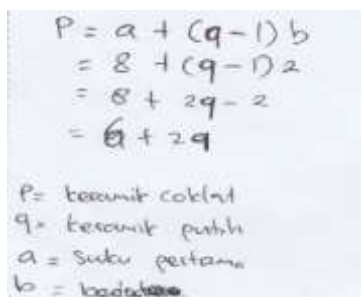 P = a + (q-1) b
= 8 + (q-1) 2
= 8 + 2q - 2
= 6 + 2q
P = keramik coklat
q = keramik putih
a = suku pertama
b =